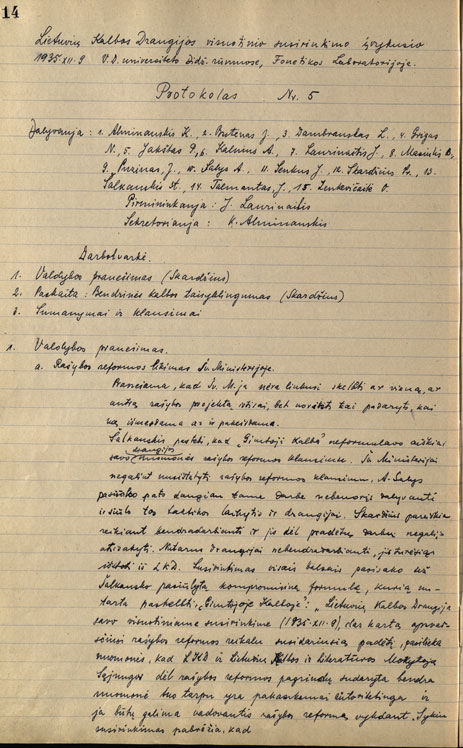 14
Lietuvių Kalbos Draugijos visuotinio susirinkimo įvykusio
1935.XII.9 V.D. universiteto Didž. rūmuose, Fonetikos Laboratorijoje.
Protokolas Nr. 5
Dalyvauja: 1. Alminauskis K., 2. Butėnas J., 3. Dambrauskas L., 4. Grigas
N., 5. Jakštas P., 6. Kalnius A., 7. Laurinaitis J., 8.
9. Puzinas, J., 10. Salys A., 11. Senkus J., 12. Skardžius Pr., 13.
Šalkauskis St., 14. Talmantas, J., 15.
Pirmininkauja: J. Laurinaitis
Sekretoriauja: K. Alminauskis
Darbotvarkė.
1. Valdybos pranešimas (Skardžius)
2. Paskaita: Bendrinės kalbos taisyklingumas (Skardžius)
3. Sumanymai ir klausimai
1. Valdybos pranešimas.
a. Rašybos reformos likimas Šv. Ministerijoje.
Pranešama, kad Šv. M-ja nėra linkusi skelbti ar vieną, ar
antrą rašybos projektą ištisai, bet norėtų tai padaryti, kai
ką išmesdama ar pakeisdama.
Šalkauskis, kad "Gimtoji Kalba" neformulavo aiškiai
savo draugijos nuomonės rašybos reformos klausimu. Šv. Ministerijai
negalint nusistatyti rašybos reformos klausimu, A. Salys
pats daugiau tame darbe nebenorįs dalyvauti
ir tos taktikos laikytis ir draugijai. Skardžius pareiškia
reikiant bendradarbiauti ir jis dėl pradėtų darbų negalįs
atsisakyti. Nutarus draugijai nebendradarbiauti, jis
ir iš LKD. Susirinkimas visais balsais pasisako už
Šalkausko pasiūlytą kompromisinę formulę, kurią nu-
tarta paskelbti "Gimtojoje Kalboje": "Lietuvių Kalbos Draugija
savo visuotiniame susirinkime (1935.XII.9), dar kartą apsvar-
sčiusi rašybos reformos reikalu susidariusią padėtį, pareiškia
nuomonės, kad LKD ir Lietuvių Kalbos ir Literatūros Mokytojų
Sąjungos dėl rašybos reformos pagrindų sudaryta bendra
nuomonė tuo tarpu yra pakankamai autoritetinga ir
ja būtų galima vadovautis rašybos reformą vykdant. Sykiu
susirinkimas pabrėžia, kad